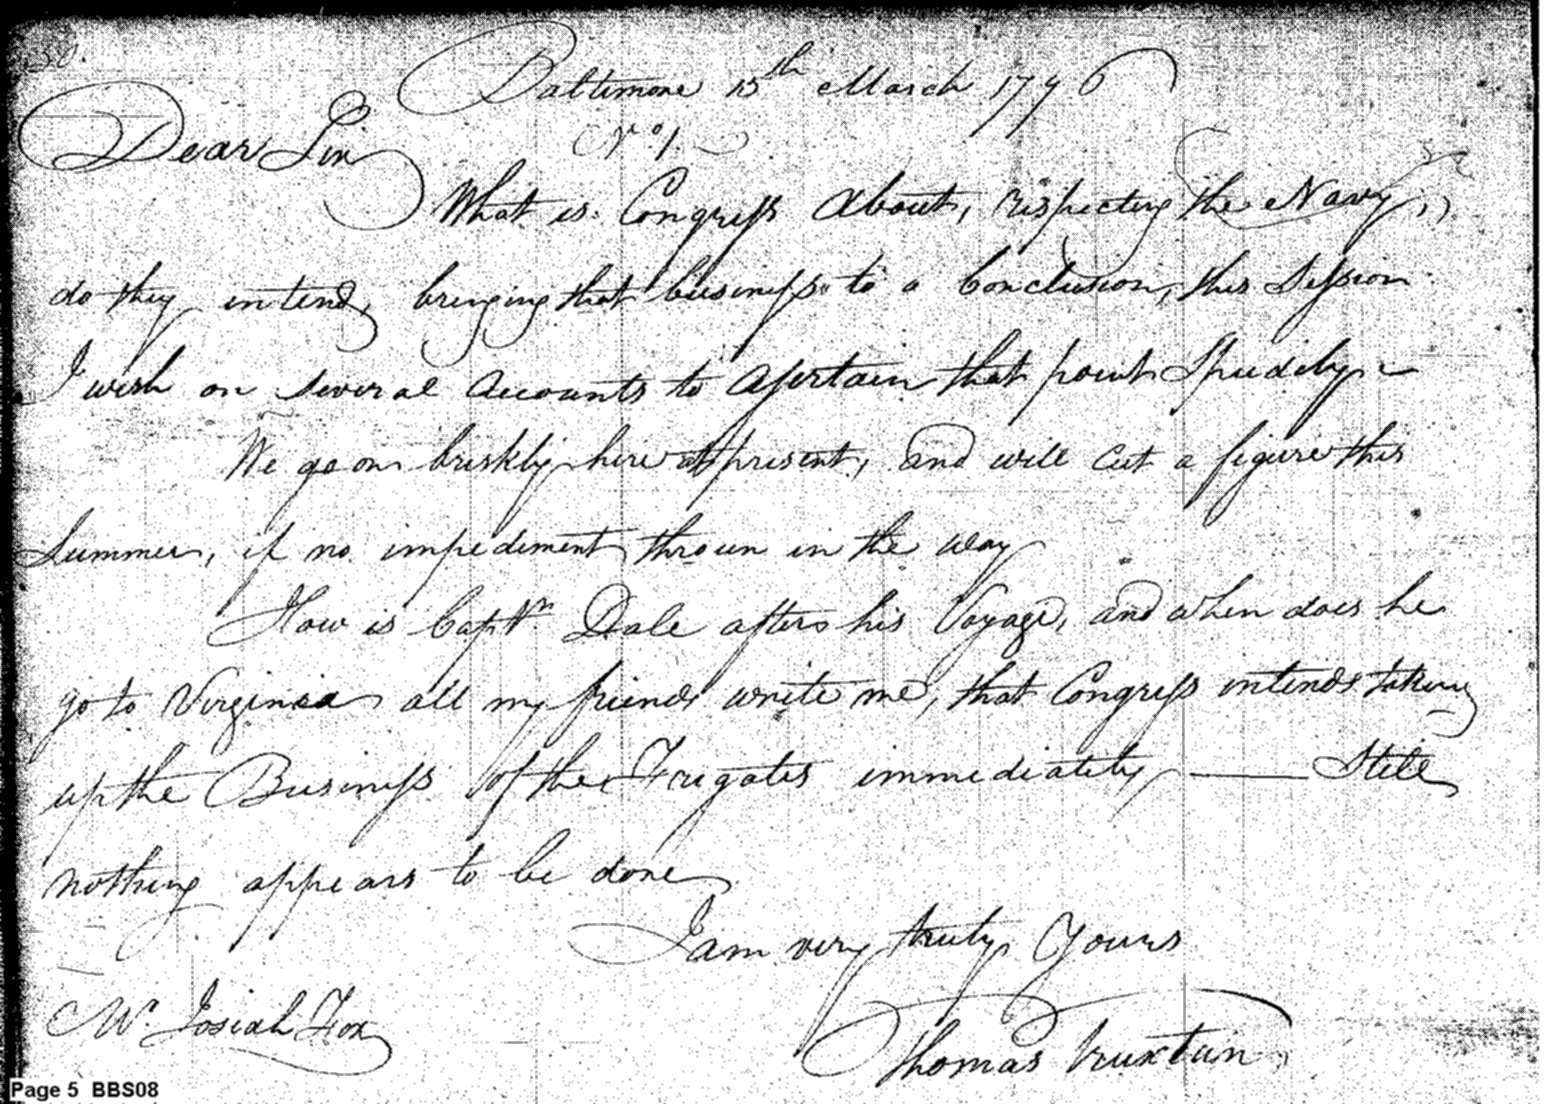 Baltimore 15th March 1796
Dear Sir
What is Congress About, respecting the Navy,
do they intend, bringing that business to a Conclusion, this Session
I wish on several accounts to assertain that point Speedily
We go on briskly here at present, and will cut a figure this
Summer, if no impediment thrown in the way
How is Captn Dale after his Voyage, and when does he
go to Virginia all my friends write me, that Congress intends taking
up the Business of the Frigates immediately — Still
nothing appears to be done
I am very truly Yours
Mr. Josiah Fox
Thomas Truxtun
Page 5 BBS08